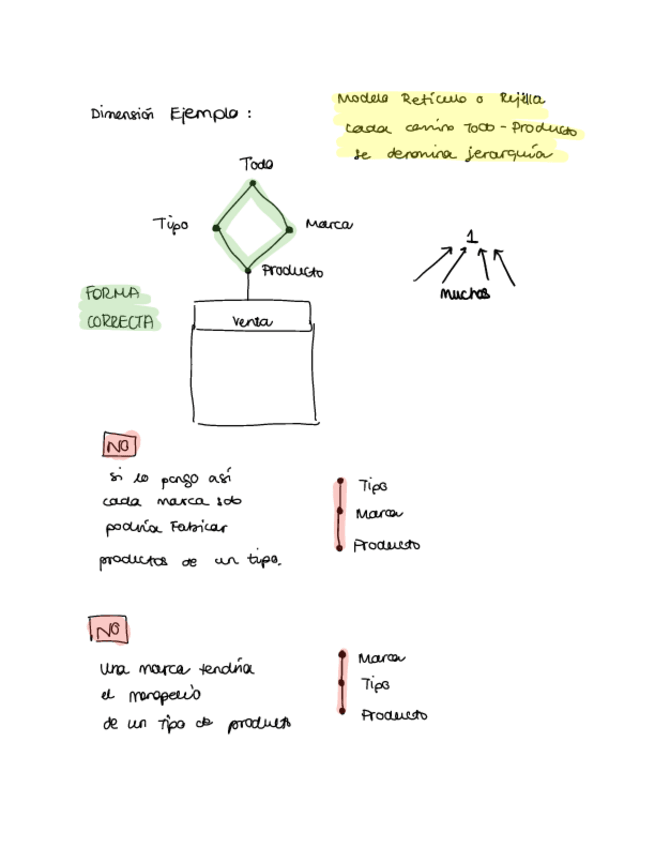 Dimensión Ejemplo:
Modelo Retículo o Rejilla
cada camino Todo - Producto
se denomina jerarquía
Todo
Tipo
Marca
Producto
1
muchos
FORMA
CORRECTA
Venta
NO
si lo pongo así
cada marca solo
podría Fabricar
productos de un tipo.
Tipo
Marca
Producto
NO
Una marca tendría
el monopolio
de un tipo de producto
Marca
Tipo
Producto